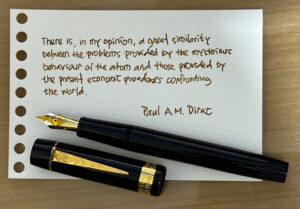 There is, in my opinion, a great similarity
between the problems provided by the mysterious
behaviour of the atom and those provided by
the present economic paradoxes confronting
the world.
Paul A.M. Dirac